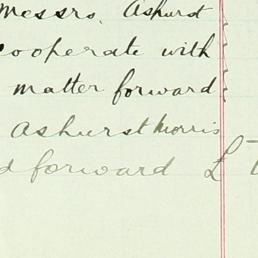 Messrs. Ashurst
cooperate with
matter forward
Ashurst Morris
forward L